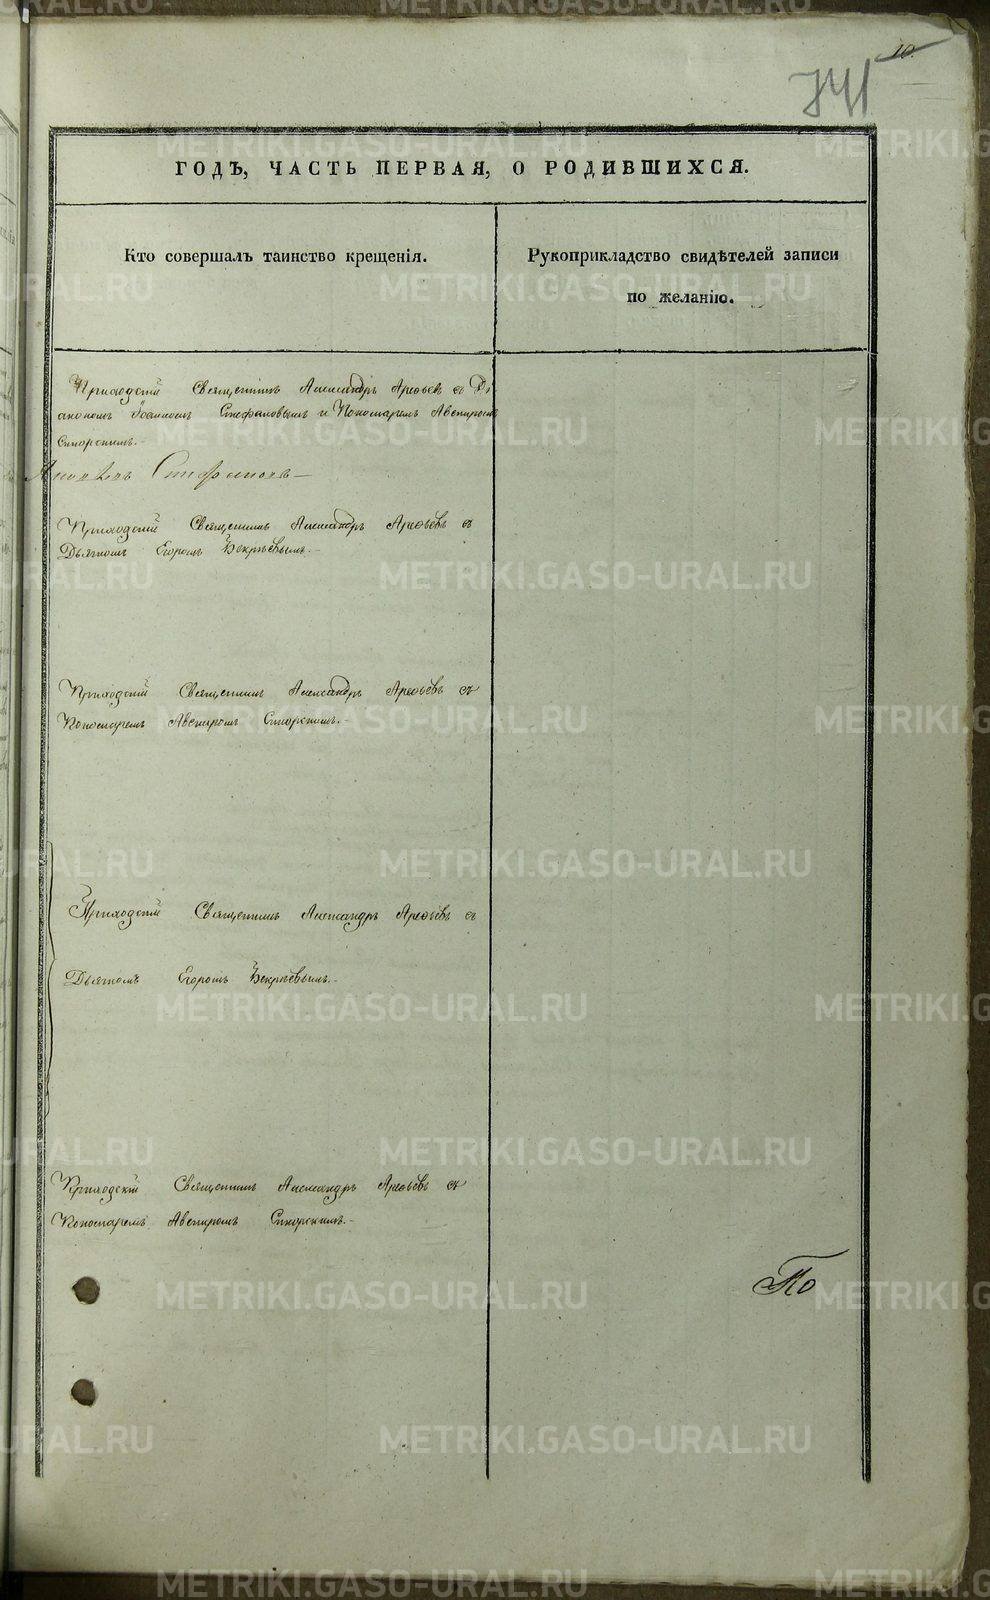 10.
741
ГОДЪ, ЧАСТЬ ПЕРВАЯ, О РОДИВШИХСЯ.
Кто совершалъ таинство крещенія.
Рукоприкладство свидѣтелей записи
по желанію.
Приходскій Священникъ Александръ Арефьевъ съ Ді
акономъ Іоанномъ Стефановымъ и Пономаремъ Авениромъ
Сикорскимъ.-
Стефановъ
Приходскій Священникъ Александръ Арефьевъ съ
Дьячкомъ Егоромъ
Приходскій Священникъ Александръ Арефьевъ съ
Пономаремъ Авениромъ Сикорскимъ.-
Приходскій Священникъ Александръ Арефьевъ съ
Дьячкомъ Егоромъ
Приходскій Священникъ Александръ Арефьевъ съ
Пономаремъ Авениромъ Сикорскимъ.-
По
METRIKI.GASO-URAL.RU